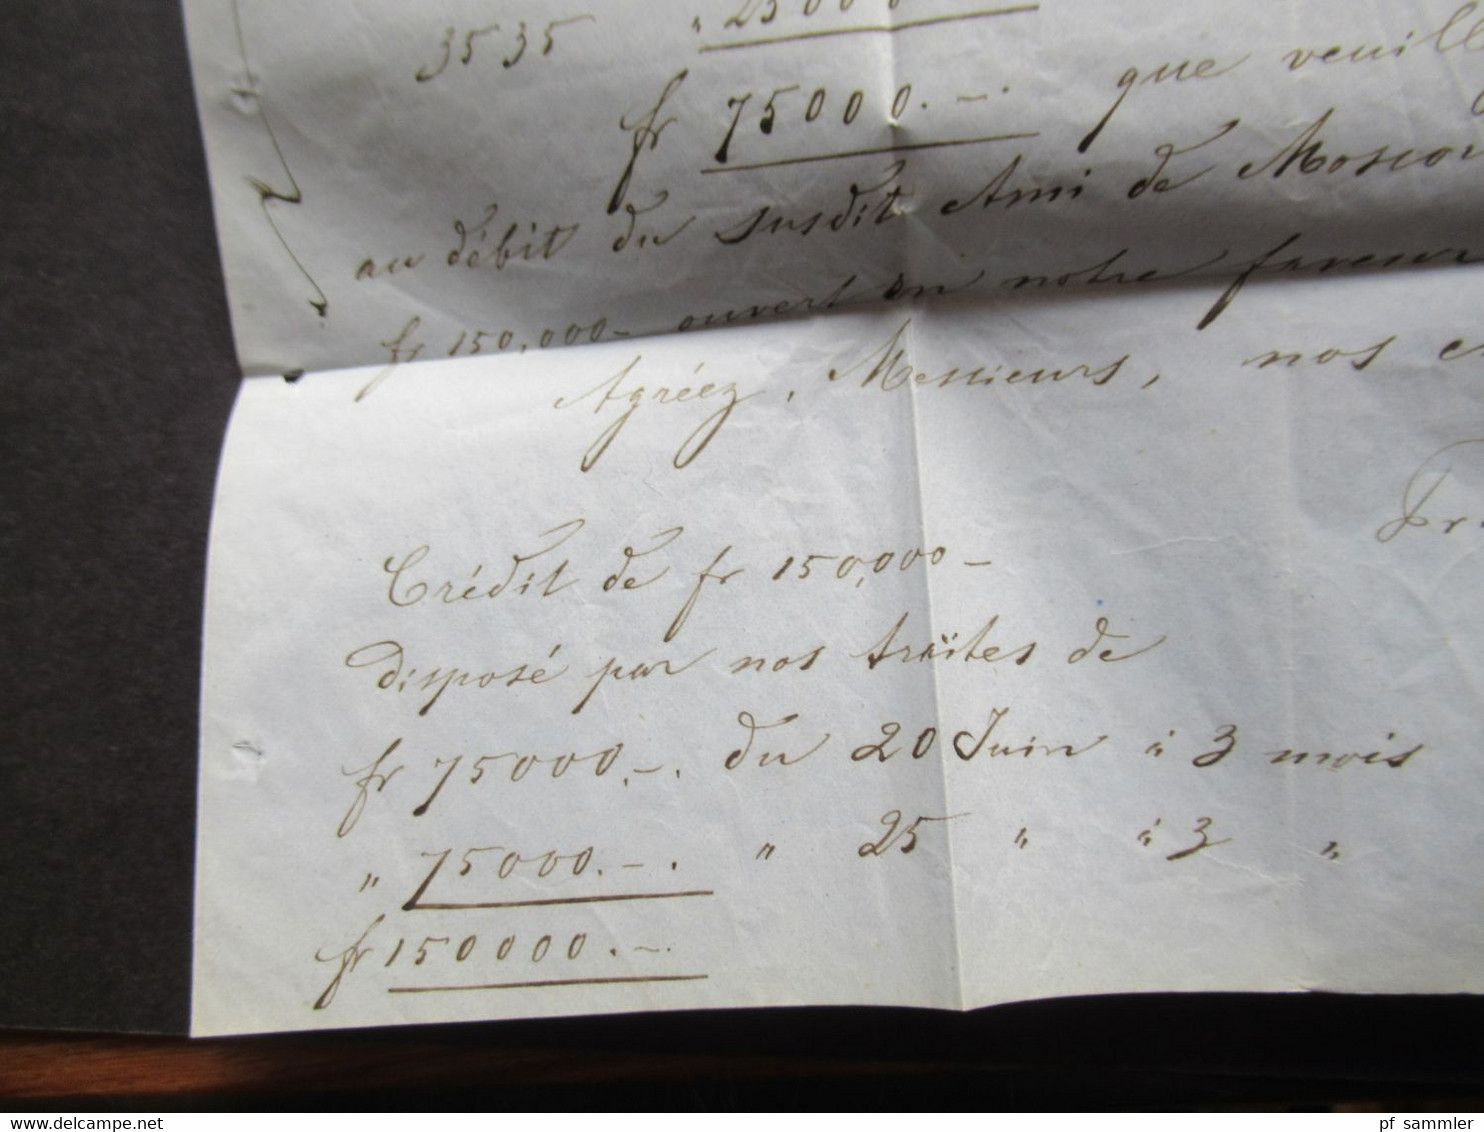 3535 " 25000
fr 75000.-. que veuill
au débit du susdit Ami de Moscou
fr 150,000- ouvert en notre faveur
Agréez, Messieurs, nos
Crédit de fr 150,000-
disposé par nos traïtes de
fr 75000.-. du 20 Juin à 3 mois
" 75000.-. " 25 " à 3 "
fr 150000.-.
delcampe.net
pf_sammler